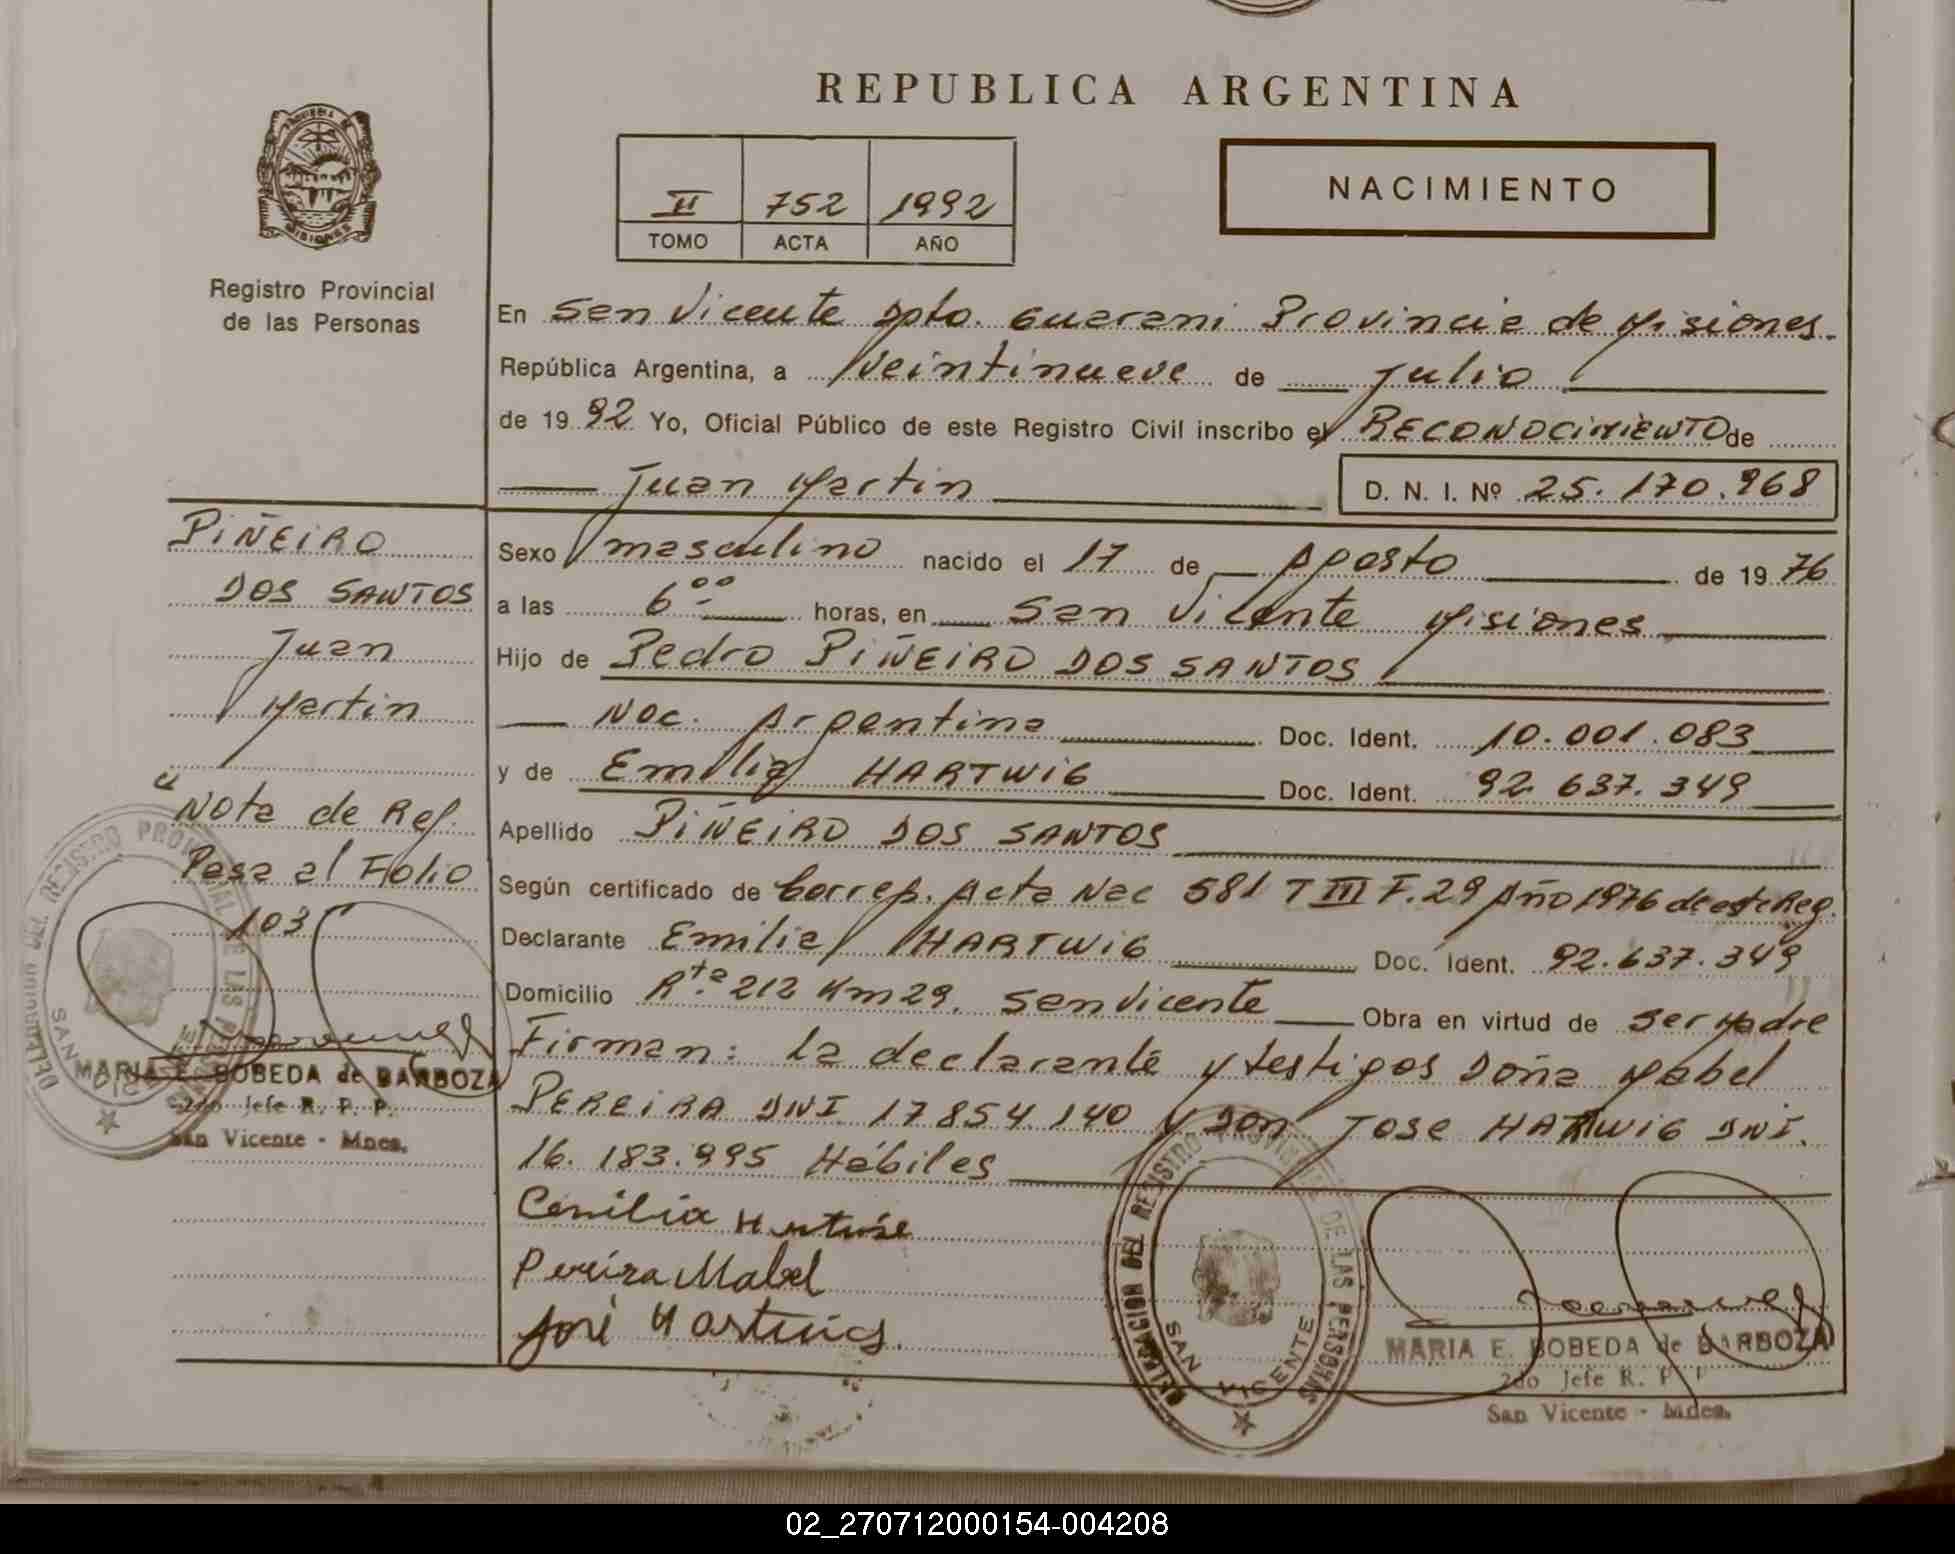 REPUBLICA ARGENTINA
II 752 1992
TOMO ACTA AÑO
NACIMIENTO
MISIONES
Registro Provincial
de las Personas
En San Vicente Dpto. Guarani Provincia de Misiones.
República Argentina, a Veintinueve de Julio
de 19 92 Yo, Oficial Público de este Registro Civil inscribo el RECONOCIMIENTO de
Juan Martin D. N. I. Nº 25.170.968
Sexo masculino nacido el 17 de Agosto de 19 76
a las 6 00 horas, en San Vicente Misiones
Hijo de Pedro PIÑEIRO DOS SANTOS
Nac. Argentina Doc. Ident. 10.001.083
y de Emilia HARTWIG Doc. Ident. 92.637.349
Apellido PIÑEIRO DOS SANTOS
Según certificado de Corresp. Acta Nac 581 T III F.29 Año 1976 de este Reg.
Declarante Emilia HARTWIG Doc. Ident. 92.637.349
Domicilio Rta 212 Km 29. San Vicente Obra en virtud de ser Madre
Firman: La declarante y testigos Doña Mabel
PEREIRA DNI 17854.140 y Don Jose HARTWIG DNI.
16.183.995 Hábiles
Pereira Mabel
José Hartwig.
PIÑEIRO
DOS SANTOS
Juan
Martin
"Nota de Ref.
Pasa al Folio
103
MARIA E. BOBEDA de BARBOZA
2do Jefe R. P. P.
San Vicente - Mnes.
DELEGACION DEL REGISTRO PROVINCIAL DE LAS PERSONAS
SAN VICENTE
DELEGACION DEL REGISTRO PROVINCIAL DE LAS PERSONAS
SAN VICENTE
MARIA E. BOBEDA de BARBOZA
2do Jefe R. P. P.
San Vicente - Mnes.
02_270712000154-004208